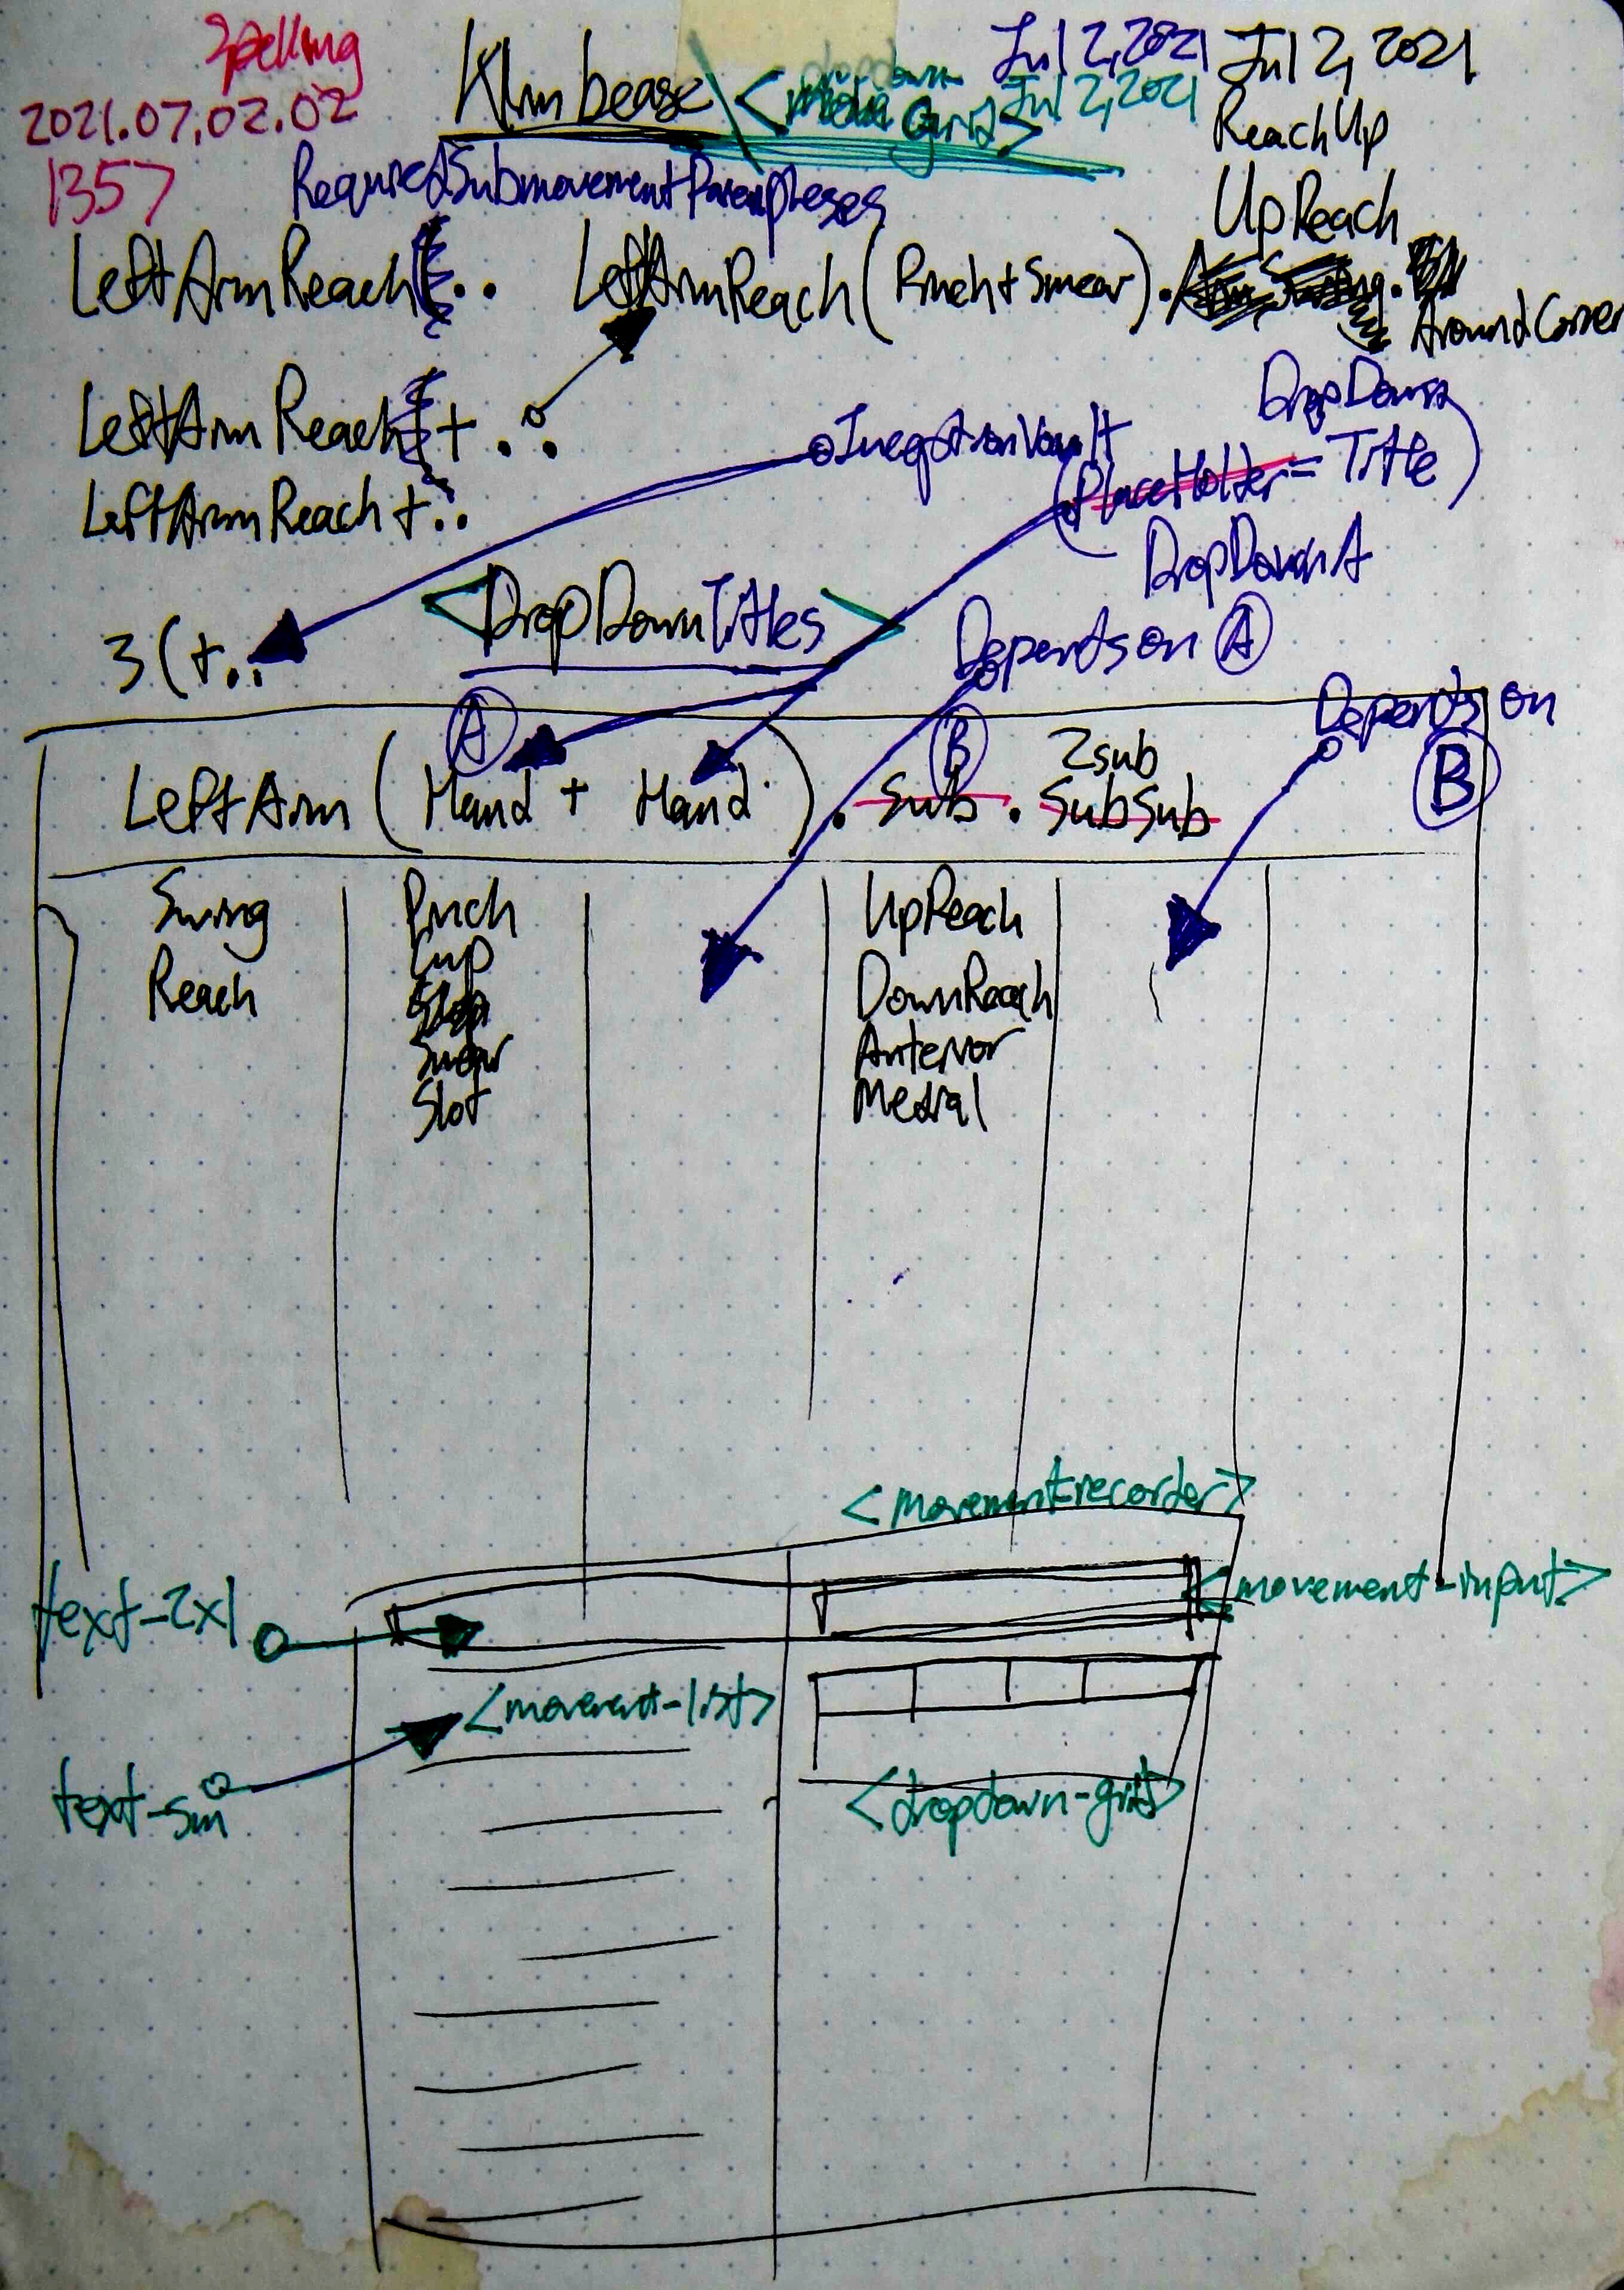 Spelling
2021.07.02.02
1357
Jul 2, 2021 Jul 2, 2021
Jul 2, 2021
ReachUp
UpReach
RequiredSubmovementParentheses
LeftArmReach ..
LeftArmReach(Pinch+Smear).
AroundCorner
LeftArmReach + ..
LeftArmReach + ..
DropDown
(PlaceHolder = Title)
DropDownA
3(+..
<DropDownTitles>
Depends on A
Depends on
B
A
B
2sub
LeftArm (Hand + Hand). Sub . SubSub
Swing
Reach
Pinch
Cup
Smear
Slot
UpReach
DownReach
Anterior
Medial
<movement-recorder>
text-2xl
<movement-input>
<movement-list>
text-sm
<dropdown-grid>